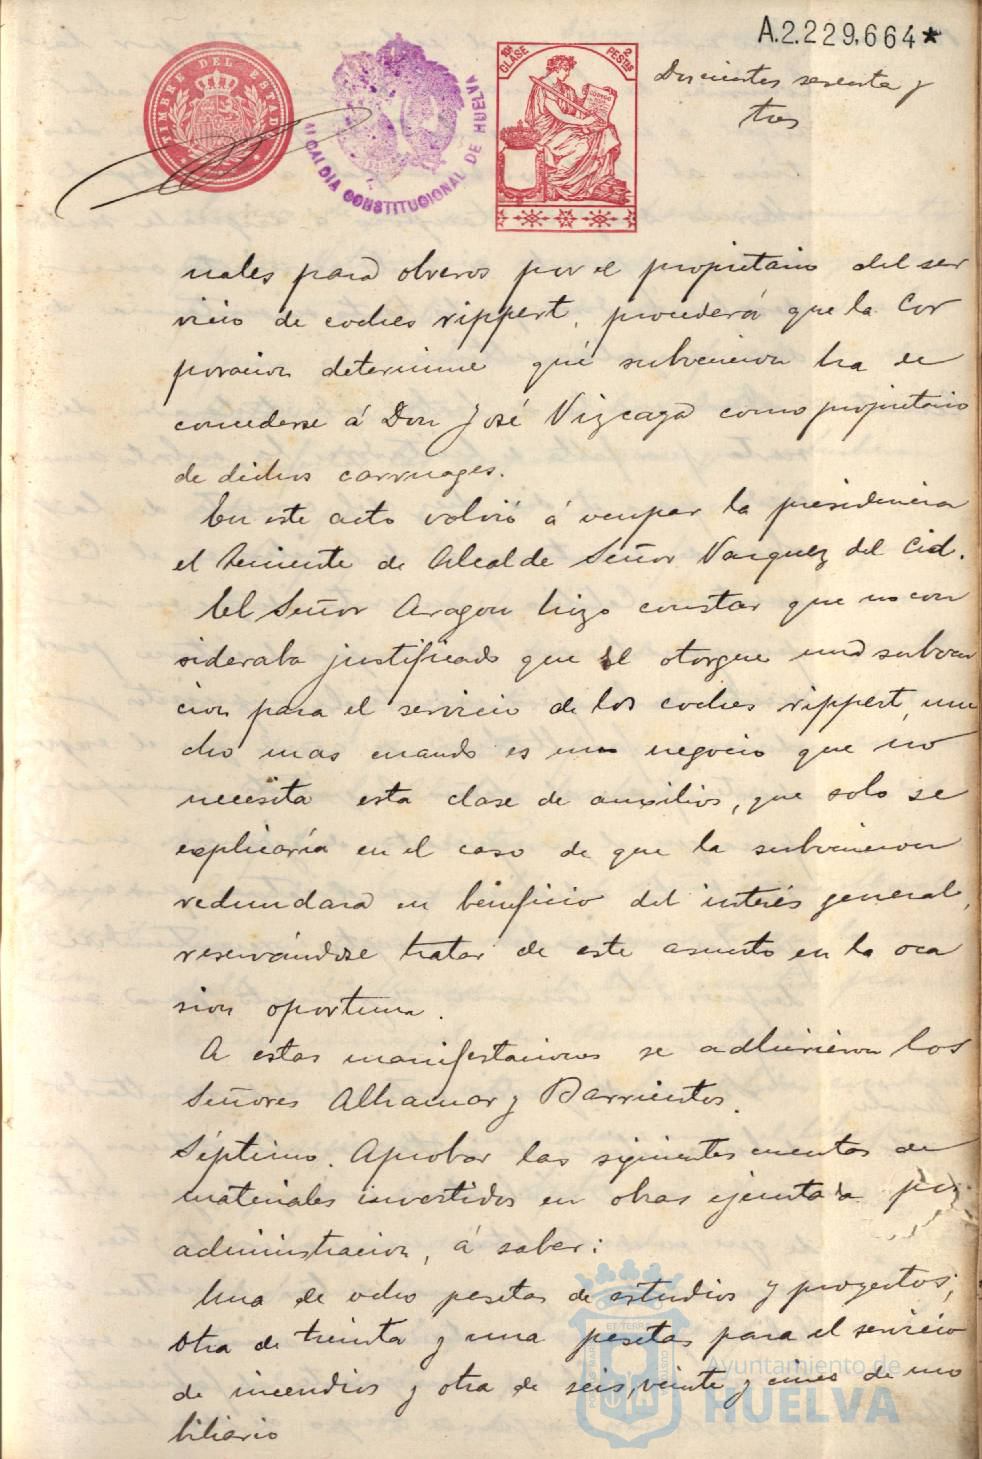 A.2.229,664*
TIMBRE DEL ESTADO
ALCALDIA CONSTITUCIONAL DE HUELVA
10ª CLASE
2 PESTAS
CODIGO
Doscientos sesenta y
tres
uales para obreros por el propietario del ser
vicio de coches rippert, procederá que la Cor
poracion determine qué subvencion ha de
concederse á Don José Vizcaya como propietario
de dichos carruages.
En este acto volvió á ocupar la presidencia
el teniente de Alcalde Señor Vazquez del Cid.
El Señor Aragon hizo constar que no con
sideraba justificado que se otorgue una subven
cion para el servicio de los coches rippert, mu
cho mas cuando es un negocio que no
necesita esta clase de auxilios, que solo se
explicaría en el caso de que la subvencion
redundara en beneficio del interés general,
reservándose tratar de este asunto en la oca
sion oportuna.
A estas manifestaciones se adhirieron los
Señores Alhamar y Barrientos.
Séptimo. Aprobar las siguientes cuentas de
materiales invertidos en obras ejecutada por
administracion, á saber:
Una de ocho pesetas de estudios y proyectos;
otra de treinta y una pesetas para el servicio
de incendios y otra de seis, veinte y cinco de mo
biliario
Ayuntamiento de
HUELVA